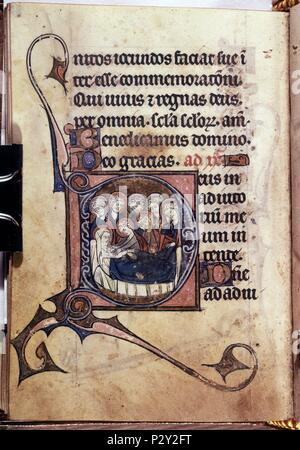 nitos iocundos faciat sue i
ter esse commemoratōni
Qui uiuis ⁊ regnas deus.
per omnia. scla sclorȝ. am̄
Benedicamus domino.
Deo gracias. ad
Deus in
adiuto
riū me
um in
tente.
Dñe
ad adiu
alamy
Image ID: P2Y2FT
www.alamy.com